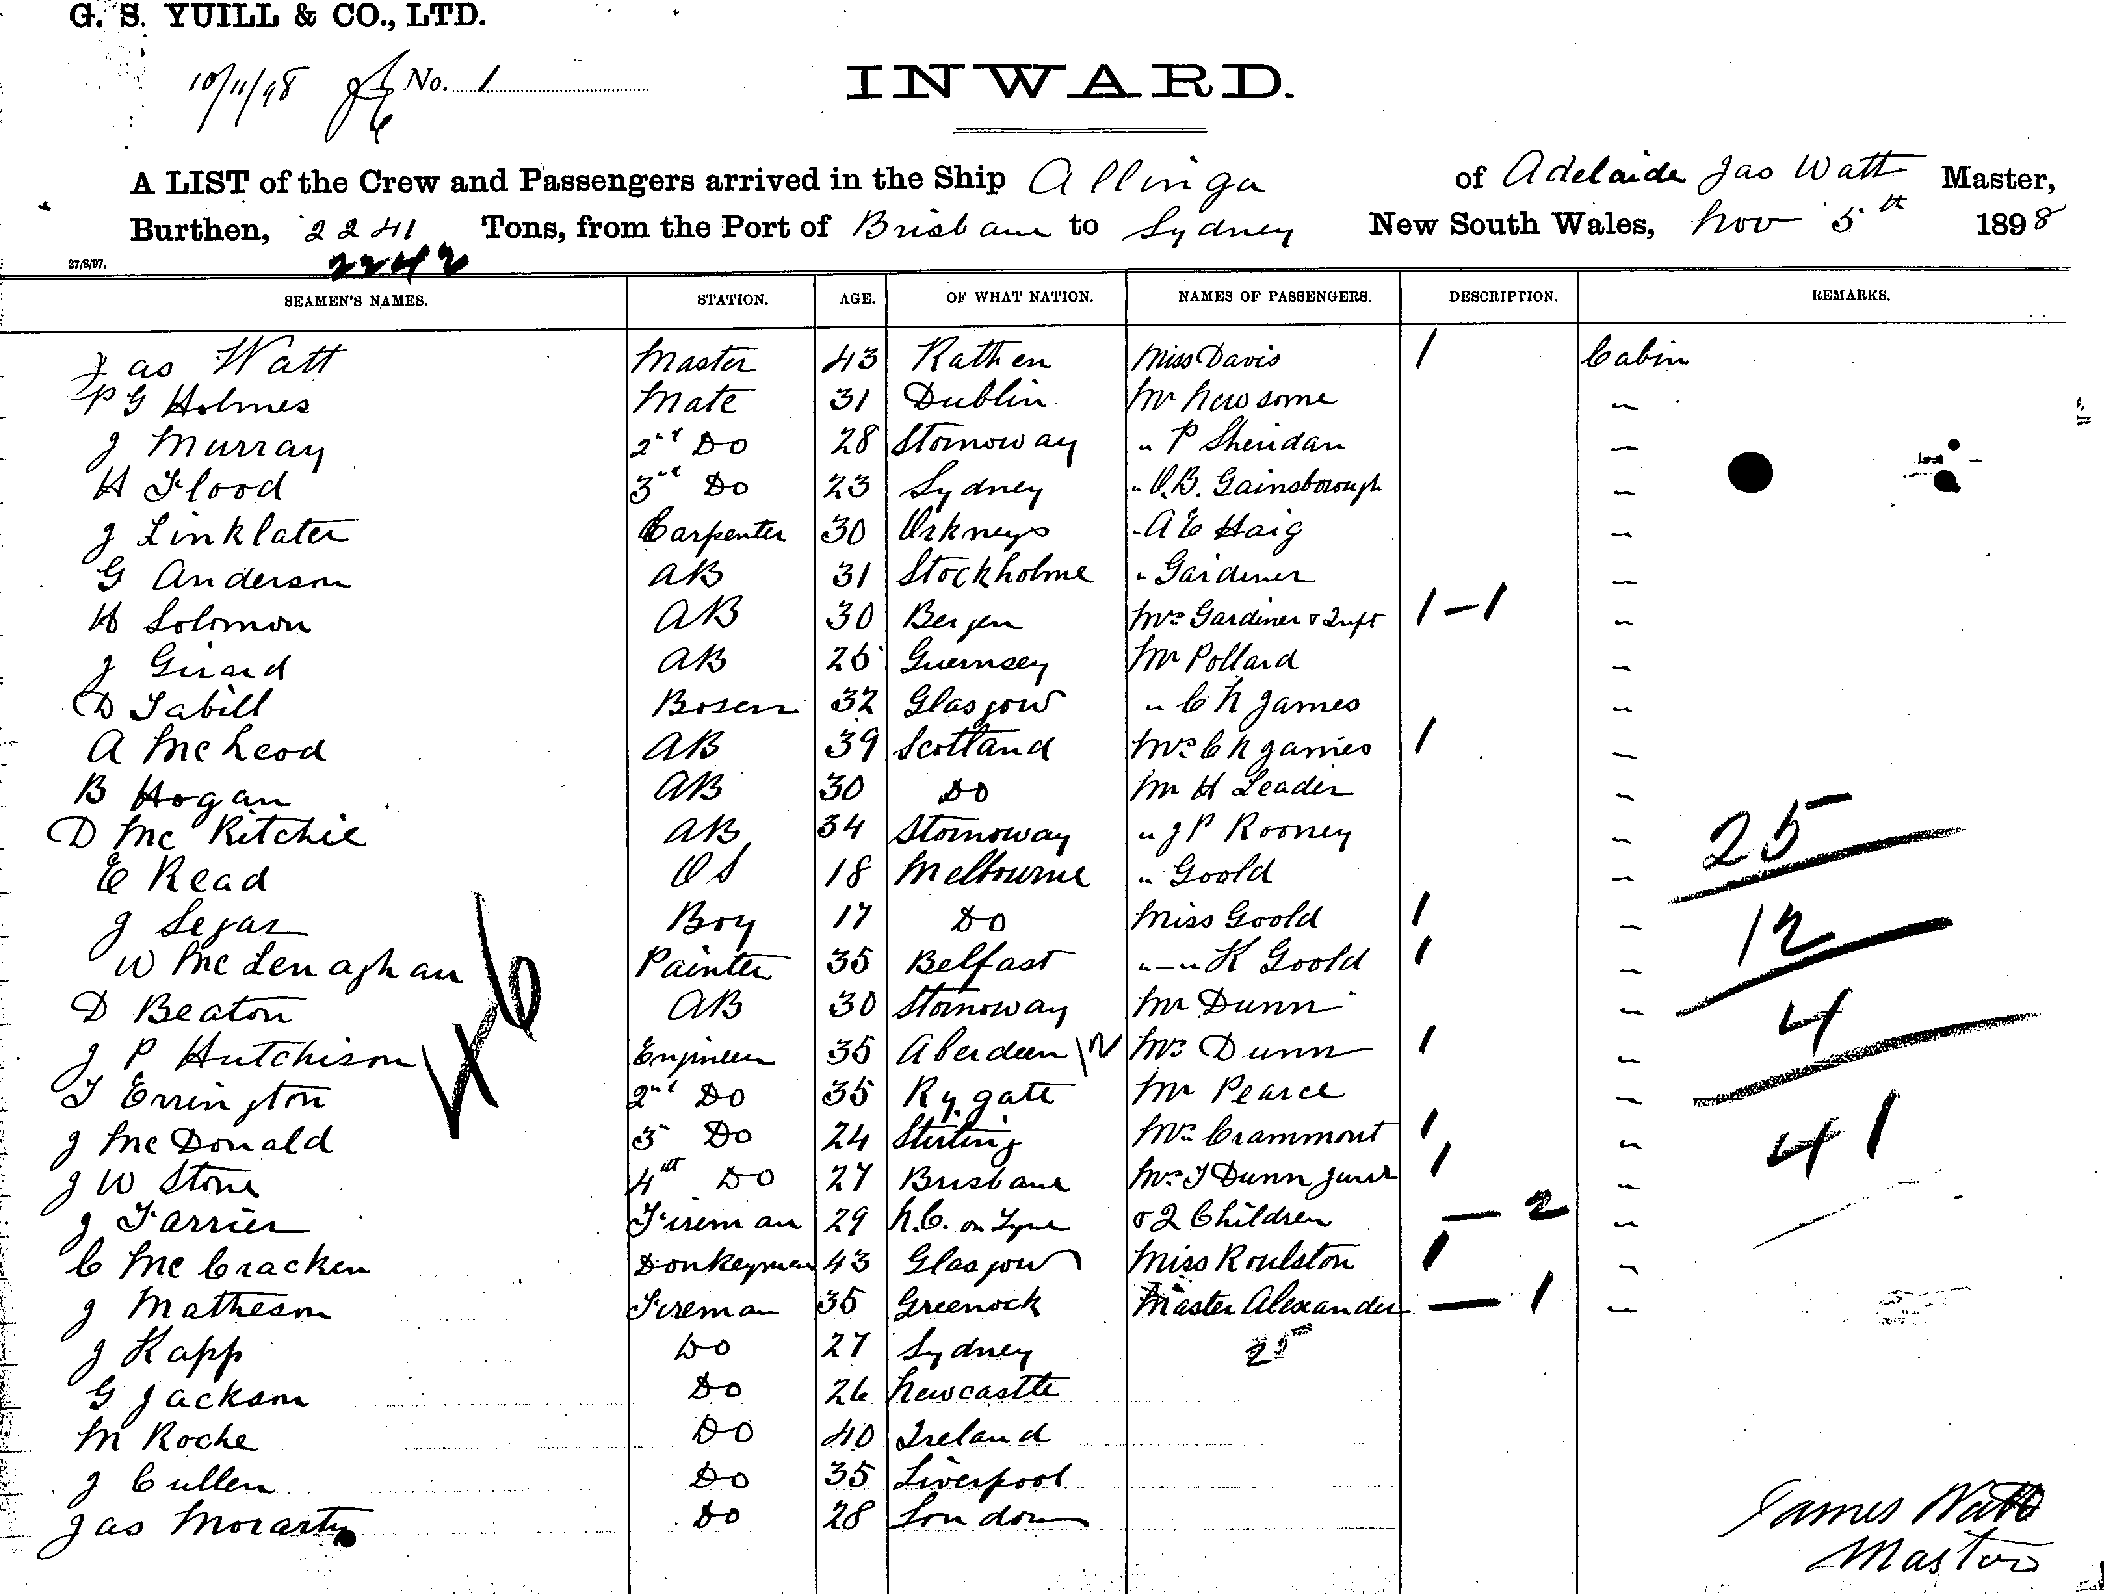 G. S. YUILL & CO., LTD.
10/11/98 No. 1
INWARD.
A LIST of the Crew and Passengers arrived in the Ship Allinga of Adelaide Jas Watt Master,
Burthen, 2241 Tons, from the Port of Brisbane to Sydney New South Wales, Nov 5th 1898
27/8/97. 2242
SEAMEN'S NAMES. STATION. AGE. OF WHAT NATION. NAMES OF PASSENGERS. DESCRIPTION. REMARKS.
Jas Watt Master 43 Rathen Miss Davis 1 Cabin
P G Holmes Mate 31 Dublin Mr Newsome "
J Murray 2nd Do 28 Stornoway " P Sheridan "
H Flood 3rd Do 23 Sydney " O.B. Gainsborough "
J Linklater Carpenter 30 Orkneys " A E Haig "
G Anderson AB 31 Stockholme " Gardiner "
H Solomon AB 30 Bergen Mrs Gardiner & Inft 1 - 1 "
J Girard AB 25 Guernsey Mr Pollard "
D Tabill Bosen 32 Glasgow " C N James "
A McLeod AB 39 Scotland Mrs C N James 1 "
B Hogan AB 30 Do Mr H Leader "
D McRitchie AB 34 Stornoway " J P Rooney " 25
E Read OS 18 Melbourne " Goold "
J Segar Boy 17 Do Miss Goold 1 " 12
W McLenaghan Painter 35 Belfast "-" K Goold 1 "
D Beaton AB 30 Stornoway Mr Dunn " 4
J P Hutchison Engineer 35 Aberdeen 12 Mrs Dunn 1 "
T Errington 2nd Do 35 Rygate Mr Pearce "
J McDonald 3 Do 24 Stirling Mrs Crammont 1 " 41
J W Stone 4th Do 27 Brisbane Mrs T Dunn Junr 1 "
J Farrier Fireman 29 N.C. on Tyne & 2 Children - 2 "
C McCracken Donkeyman 43 Glasgow Miss Roulston 1 "
J Matheson Fireman 35 Greenock Master Alexander - 1 "
J Kapp Do 27 Sydney 25
G Jackson Do 26 Newcastle
M Roche Do 40 Ireland
J Cullen Do 35 Liverpool
Jas Morarty Do 28 London
James Watt
Master